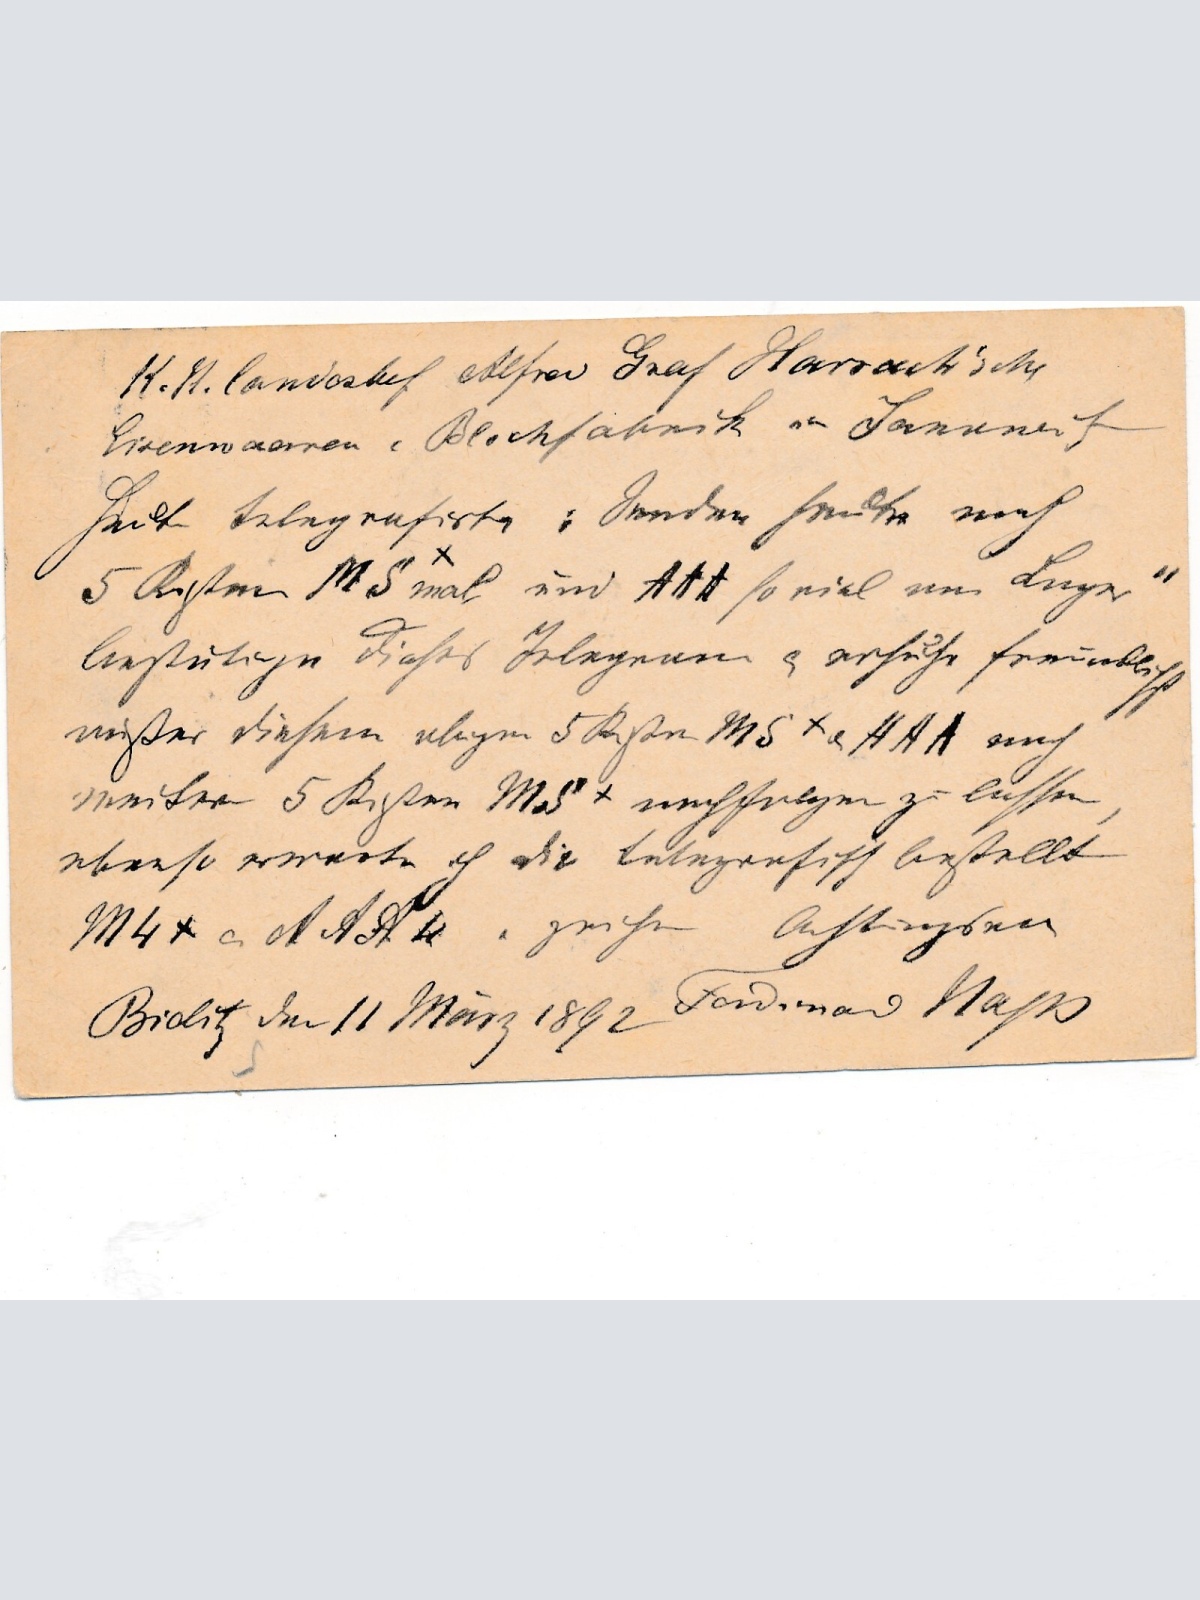 K. K. landesbef Alfred Graf Harrach'sche
Eisenwaaren & Blechfabrik in Janowitz
Heute telegrafirte : Senden heute noch
5 Kisten M5 x mal und AAA so viel am Lager"
bestätige dieses Telegram & ersuche freundlichst
außer diesem obigen 5 Kisten M5 x & AAA noch
weitere 5 Kisten M5 x nachfolgen zu lassen,
ebenso erwarte ich die telegrafisch bestellt
M4 x & AAA 4 zeichne Achtungsvoll
Bielitz den 11 März 1892 Ferdinand